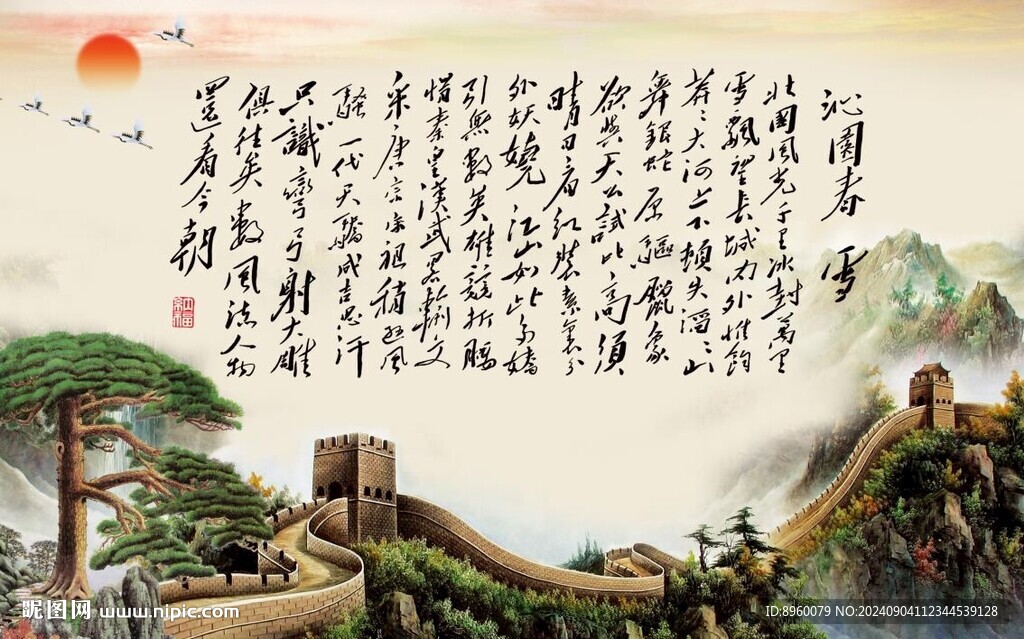 沁園春 雪
北國風光千里冰封萬里
雪飄望長城內外惟餘
莽〻大河上下頓失滔〻山
舞銀蛇原驅臘象
欲與天公試比高須
晴日看紅裝素裹分
外妖嬈江山如此多嬌
引無數英雄競折腰
惜秦皇漢武略輸文
采唐宗宋祖稍遜風
騷一代天驕成吉思汗
只識彎弓射大雕
俱往矣數風流人物
還看今朝
昵图网 www.nipic.com
ID:8960079 NO:20240904112344539128